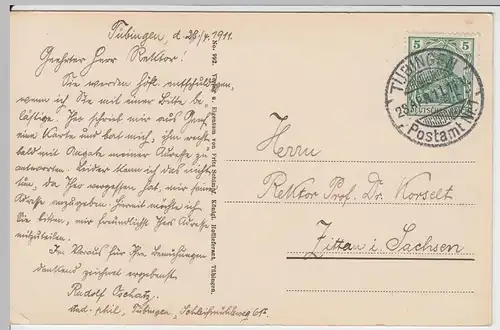 Tübingen, d. 28/4. 1911.
Geehrter Herr Rektor!
Sie werden höfl. entschuldigen,
wenn ich Sie mit einer Bitte be-
lästige. Herr schrieb mir aus Genf
eine Karte und bat mich, ihm recht
bald mit Angabe meiner Adresse zu
antworten. Leider kann ich das nicht
tun, da Herr vergessen hat, mir seine
Adresse anzugeben. Hiermit möchte ich
Sie bitten, mir freundlichst Herrs Adresse
mitzuteilen.
Im Voraus für Ihre Bemühungen
dankend zeichnet ergebenst
Rudolf Oschatz,
stud. phil., Tübingen, Schleifmühleweg 61a.
No. 992. Verlag u. Eigentum von Fritz Königl. Hoflieferant, Tübingen.
5 5
TÜBINGEN
28.4.11.
Postamt Nr. 1
Herrn
Rektor Prof. Dr. Korselt
Zittau i. Sachsen